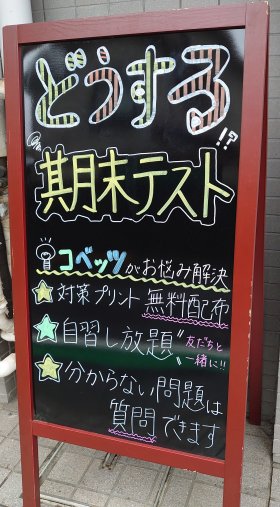 どうする
!?
期末テスト
コベッツがお悩み解決
対策プリント 無料配布
自習し放題 〝友だちと
一緒に!!
分からない問題は
質問できます